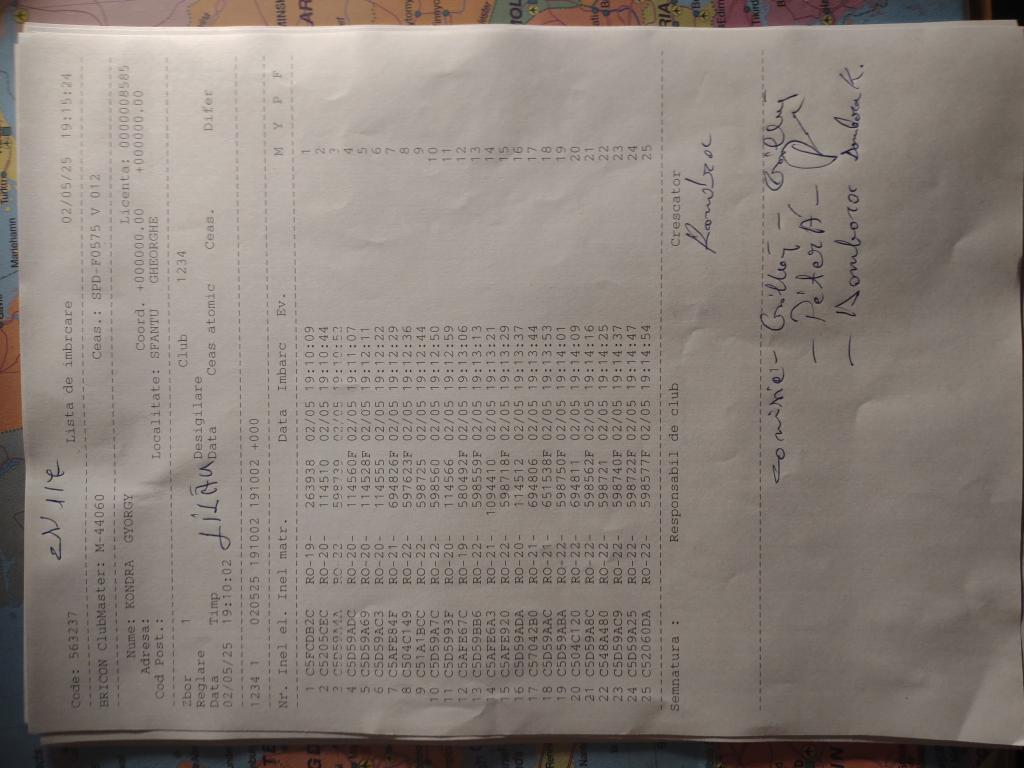 Code: 563237 Lista de imbrcare 02/05/25 19:15:24
BRICON ClubMaster: M-44060 Ceas.: SPD-F0575 V 012
Nume: KONDRA GYORGY Coord. +000000.00 Licenta: 0000008585
Adresa: +000000.00
Cod Post.: Localitate: SFANTU GHEORGHE
Zbor 1 Club 1234
Reglare Desigilare
Data Timp Data Ceas atomic Ceas. Difer
02/05/25 19:10:02
1234 1 020525 191002 191002 +000
Nr. Inel el. Inel matr. Data Imbarc Ev. M Y P F
1 C5FCDB2C RO-19- 263938 02/05 19:10:09 1
2 C5205CEC RO-20- 114510 02/05 19:10:44 2
3 RO-22- 598739 02/05 3
4 C5D59ADC RO-20- 114560F 02/05 19:11:07 4
5 C5D59A69 RO-20- 114528F 02/05 19:12:11 5
6 C5D59AC3 RO-20- 114555 02/05 19:12:22 6
7 C5AFE84F RO-21- 694826F 02/05 19:12:29 7
8 C504C149 RO-22- 597623F 02/05 19:12:36 8
9 C51A1BCC RO-22- 598725 02/05 19:12:44 9
10 C5D59A7C RO-22- 598560 02/05 19:12:51 10
11 C5D5993F RO-20- 114566 02/05 19:12:59 11
12 C5AF967C RO-19- 580492F 02/05 19:13:06 12
13 C5D59BB6 RO-22- 598559F 02/05 19:13:13 13
14 C5AFE6A3 RO-21- 1094410 02/05 19:13:21 14
15 C5AFF920 RO-22- 598719F 02/05 19:13:29 15
16 C5D59ADA RO-20- 114512 02/05 19:13:37 16
17 C57042B0 RO-21- 694806 02/05 19:13:44 17
18 C5D59AAC RO-21- 651538F 02/05 19:13:53 18
19 C5D59ABA RO-22- 598750F 02/05 19:14:01 19
20 C504C120 RO-21- 694811 02/05 19:14:09 20
21 C5D59A8C RO-22- 598562F 02/05 19:14:16 21
22 C548A480 RO-22- 598721 02/05 19:14:25 22
23 C5D59AC9 RO-22- 598740F 02/05 19:14:37 23
24 C5D59A25 RO-22- 598714F 02/05 19:14:47 24
25 C52060DA RO-22- 598577F 02/05 19:14:54 25
Semnatura : Responsabil de club Crescator
- Péter Á -